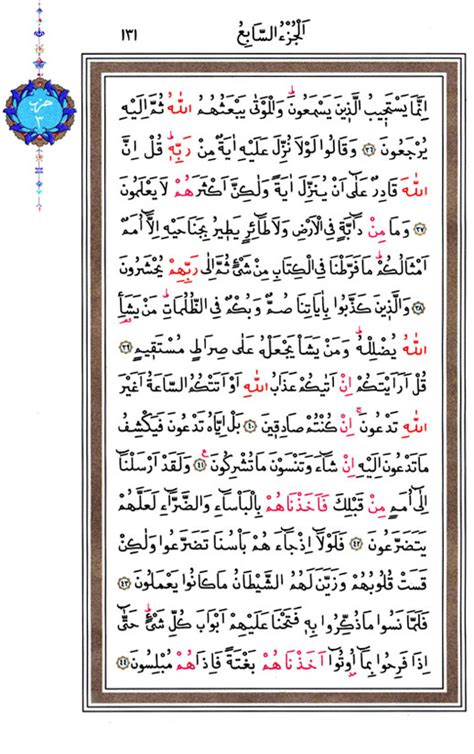 اَلْجُزْءُ السَّابِعُ
١٣١
حزب
٣
اِنَّمَا يَسْتَجٖيبُ الَّذٖينَ يَسْمَعُونَۜ وَالْمَوْتٰى يَبْعَثُهُمُ اللّٰهُ ثُمَّ اِلَيْهِ
يُرْجَعُونَ ﴿٣٦﴾ وَقَالُوا لَوْلَا نُزِّلَ عَلَيْهِ اٰيَةٌ مِنْ رَبِّهٖۜ قُلْ اِنَّ
اللّٰهَ قَادِرٌ عَلٰٓى اَنْ يُنَزِّلَ اٰيَةً وَلٰكِنَّ اَكْثَرَهُمْ لَا يَعْلَمُونَ
﴿٣٧﴾ وَمَا مِنْ دَٓابَّةٍ فِي الْاَرْضِ وَلَا طَٓائِرٍ يَطٖيرُ بِجَنَاحَيْهِ اِلَّٓا اُمَمٌ
اَمْثَالُكُمْۜ مَا فَرَّطْنَا فِي الْكِتَابِ مِنْ شَيْءٍ ثُمَّ اِلٰى رَبِّهِمْ يُحْشَرُونَ
﴿٣٨﴾ وَالَّذٖينَ كَذَّبُوا بِاٰيَاتِنَا صُمٌّ وَبُكْمٌ فِي الظُّلُمَاتِۜ مَنْ يَشَأِ
اللّٰهُ يُضْلِلْهُۜ وَمَنْ يَشَأْ يَجْعَلْهُ عَلٰى صِرَاطٍ مُسْتَقٖيمٍ ﴿٣٩﴾
قُلْ اَرَاَيْتَكُمْ اِنْ اَتٰيكُمْ عَذَابُ اللّٰهِ اَوْ اَتَتْكُمُ السَّاعَةُ اَغَيْرَ
اللّٰهِ تَدْعُونَۚ اِنْ كُنْتُمْ صَادِقٖينَ ﴿٤٠﴾ بَلْ اِيَّاهُ تَدْعُونَ فَيَكْشِفُ
مَا تَدْعُونَ اِلَيْهِ اِنْ شَٓاءَ وَتَنْسَوْنَ مَا تُشْرِكُونَ۟ ﴿٤١﴾ وَلَقَدْ اَرْسَلْنَٓا
اِلٰٓى اُمَمٍ مِنْ قَبْلِكَ فَاَخَذْنَاهُمْ بِالْبَأْسَٓاءِ وَالضَّرَّٓاءِ لَعَلَّهُمْ
يَتَضَرَّعُونَ ﴿٤٢﴾ فَلَوْلَٓا اِذْ جَٓاءَهُمْ بَأْسُنَا تَضَرَّعُوا وَلٰكِنْ
قَسَتْ قُلُوبُهُمْ وَزَيَّنَ لَهُمُ الشَّيْطَانُ مَا كَانُوا يَعْمَلُونَ ﴿٤٣﴾
فَلَمَّا نَسُوا مَا ذُكِّرُوا بِهٖ فَتَحْنَا عَلَيْهِمْ اَبْوَابَ كُلِّ شَيْءٍۜ حَتّٰٓى
اِذَا فَرِحُوا بِمَٓا اُو۫تُٓوا اَخَذْنَاهُمْ بَغْتَةً فَاِذَا هُمْ مُبْلِسُونَ ﴿٤٤﴾